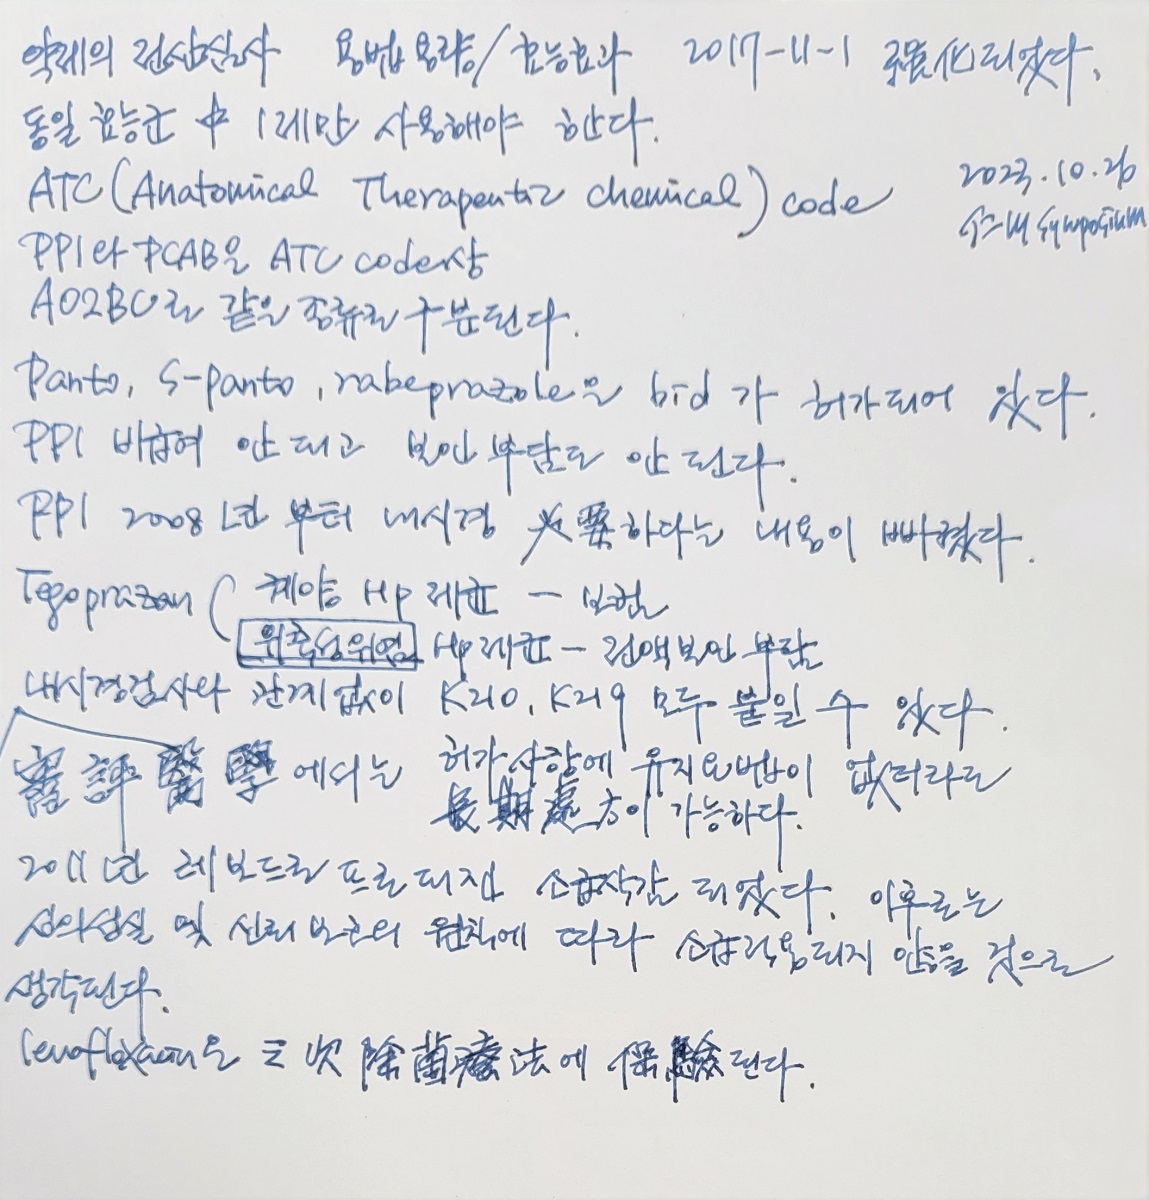 약제의 전산심사 용법용량/효능효과 2017-11-1 强化되었다.
동일 효능군 中 1제만 사용해야 한다.
ATC (Anatomical Therapeutic chemical) code
2023.10.26
symposium
PPI와 PCAB은 ATC code상
A02BC로 같은 종류로 구분된다.
Panto, S-panto, rabeprazole은 bid가 허가되어 있다.
PPI 비급여 안 되고 본인 부담도 안 된다.
PPI 2008년부터 내시경 必要하다는 내용이 빠졌다.
Tegoprazan ( 궤양 Hp 제균 - 보험
위축성위염 Hp 제균 - 전액본인부담
내시경검사와 관계없이 K210, K219 모두 붙일 수 있다.
審評醫學에서는 허가사항에 유지요법이 없더라도
長期處方이 가능하다.
2011년 레보드로프로피진 소급삭감 되었다. 이후로는
신의성실 및 신뢰보호의 원칙에 따라 소급적용되지 않을 것으로
생각된다.
levofloxacin은 三次 除菌療法에 保險된다.